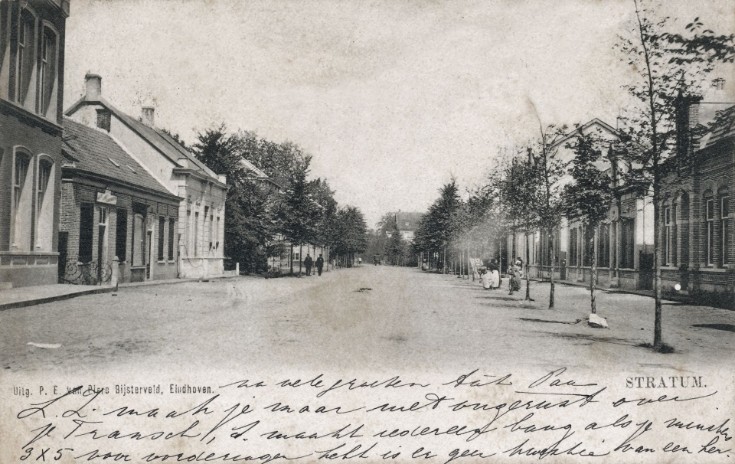 Uitg. P. E. van Piere Bijsterveld, Eindhoven.
STRATUM.
na vele groeten Pau
L. L. maak je maar niet ongerust over
je Fransch, L. maakt iedereen bang als je minstens
3X5 voor vorderingen hebt is er geen van een her.